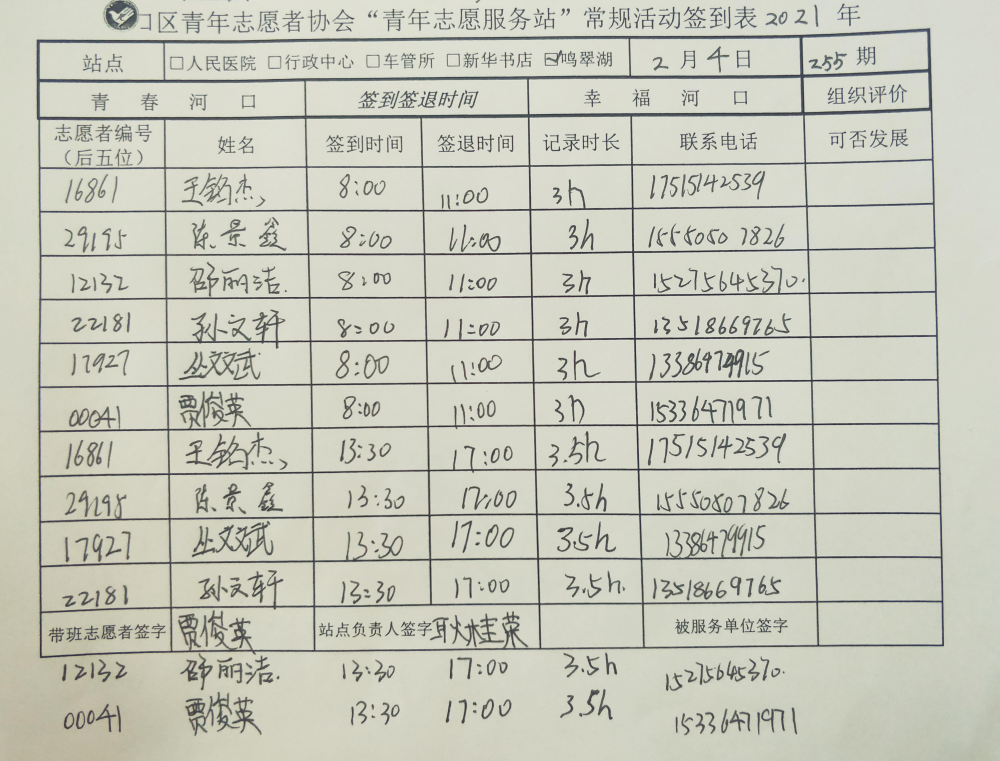 口区青年志愿者协会“青年志愿服务站”常规活动签到表 2021 年
站点 □人民医院 □行政中心 □车管所 □新华书店 ☑鸣翠湖 2 月 4 日 255 期
青 春 河 口 签到签退时间 幸 福 河 口 组织评价
志愿者编号（后五位） 姓名 签到时间 签退时间 记录时长 联系电话 可否发展
16861 王铭杰 8:00 11:00 3h 17515142539
29195 陈景鑫 8:00 11:00 3h 15550507826
12132 邵丽洁. 8:00 11:00 3h 15275645370.
22181 孙文轩 8:00 11:00 3h 13518669765
17927 丛双武 8:00 11:00 3h 13386479915
00041 贾俊英 8:00 11:00 3h 15336471971
16861 王铭杰 13:30 17:00 3.5h 17515142539
29195 陈景鑫 13:30 17:00 3.5h 15550507826
17927 丛双武 13:30 17:00 3.5h 13386479915
22181 孙文轩 13:30 17:00 3.5h. 13518669765
带班志愿者签字 贾俊英 站点负责人签字 耿桂荣 被服务单位签字
12132 邵丽洁. 13:30 17:00 3.5h 15275645370.
00041 贾俊英 13:30 17:00 3.5h 15336471971